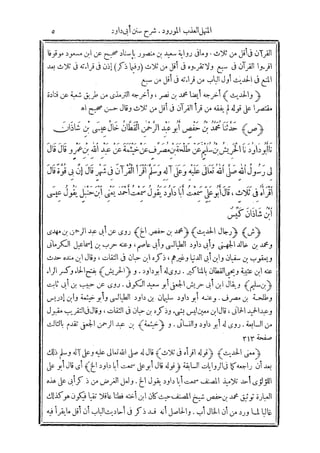 المنهل العذب المورود . شرح سنن أبي داود ٥
القرآن في أقل من ثلاث ، ومافى رواية سعيد بن منصور بإسناد صحيح عن ابن مسعود موقوفا
اقرءوا القرآن فى سبع ولاتقرءوه فى أقل من ثلاث (وفيما ذكر) إذن فى قراءته فى ثلاث بعد
المنع فى الحديث أول الباب من قراءته فى أقل من سبع
﴿ والحديث ﴾ أخرجه أيضا محمد بن نصر ، وأخرجه الترمذى من طريق شعبة عن قتادة
مقتصرا على قوله لم يفقه من قرأ القرآن فى أقل من ثلاث وقال حسن صحيح اه
﴿ص﴾ حَدَّثَنَا مُحَمَّدُ بْنُ حَفْصٍ أَبُو عَبْدِ الرَّحْمَنِ الْقَطَّانُ خَالُ عِيسَى بْنِ شَاذَانَ
نَا أَبُو دَاوُدَ نَا الْحَرِيشُ بْنُ سُلَيْمٍ عَنْ طَلْحَةَ بْنِ مُصَرِّفٍ عَنْ خَيْثَمَةَ عَنْ عَبْدِ اللهِ بْنِ عَمْرٍو قَالَ قَالَ
لِى رَسُولُ اللهِ صَلَّى اللهُ تَعَالَى عَلَيْهِ وَعَلَى آلِهِ وَسَلَّمَ اقْرَأِ الْقُرْآنَ فِى شَهْرٍ قَالَ إِنَّ بِى قُوَّةً قَالَ
اقْرَأْهُ فِى ثَلَاثٍ ، قَالَ أَبُو عَلِىٍّ سَمِعْتُ أَبَا دَاوُدَ يَقُولُ سَمِعْتُ أَحْمَدَ يَعْنِى ابْنَ حَنْبَلٍ يَقُولُ عِيسَى
ابْنُ شَاذَانَ كَيِّسٌ
﴿ش﴾ ﴿رجال الحديث﴾ ﴿محمد بن حفص الخ﴾ روى عن أبى عبد الرحمن بن مهدى
ومحمد بن خالد الجهنى وأبى داود الطيالسى وأبى عاصم ، وعنه حرب بن إسماعيل الكرمانى
ويعقوب بن سفيان وابن أبى الدنيا وغيرهم ، ذكره ابن حبان فى الثقات ، وقال ابن منده حدث
عنه ابن عيينة ويحيى القطان بالمناكير . روى له أبو داود . و ﴿الحريش﴾ بفتح الحاء وكسر الراء
﴿ابن سليم﴾ ويقال ابن أبى حريش الجعفى أبو سعيد الكوفى . روى عن حبيب بن أبى ثابت
وطلحة بن مصرف . وعنه أبو داود سليمان بن داود الطيالسى وأبو خيثمة وابن إدريس
وعبد الحميد الحمانى ، قال ابن معين ليس بشىء وذكره ابن حبان فى الثقات ، وقال فى التقريب مقبول
من السابعة . روى له أبو داود والنسائى . و ﴿خيثمة﴾ بن عبد الرحمن الجعفى تقدم بالثالث
صفحة ٣١٣
﴿معنى الحديث﴾ ﴿قوله اقرأه فى ثلاث﴾ قال له صلى الله تعالى عليه وعلى آله وسلم ذلك
بعد أن راجعه كما فى الروايات السابقة ﴿قوله قال أبو على سمعت أبا داود الخ﴾ أى قال أبو على
اللؤلؤى أحد تلاميذ المصنف سمعت أبا داود يقول الخ . ولعل الغرض من ذكر أبى على هذه
العبارة توثيق محمد بن حفص شيخ المصنف حيث كان ابن أخته فطنا عاقلا تقيا فيكون هو كذلك
غالبا لما ورد من أن الخال أب . والحاصل أنه قد ذكر فى أحاديث الباب أن أقل ما يقرأ فيه